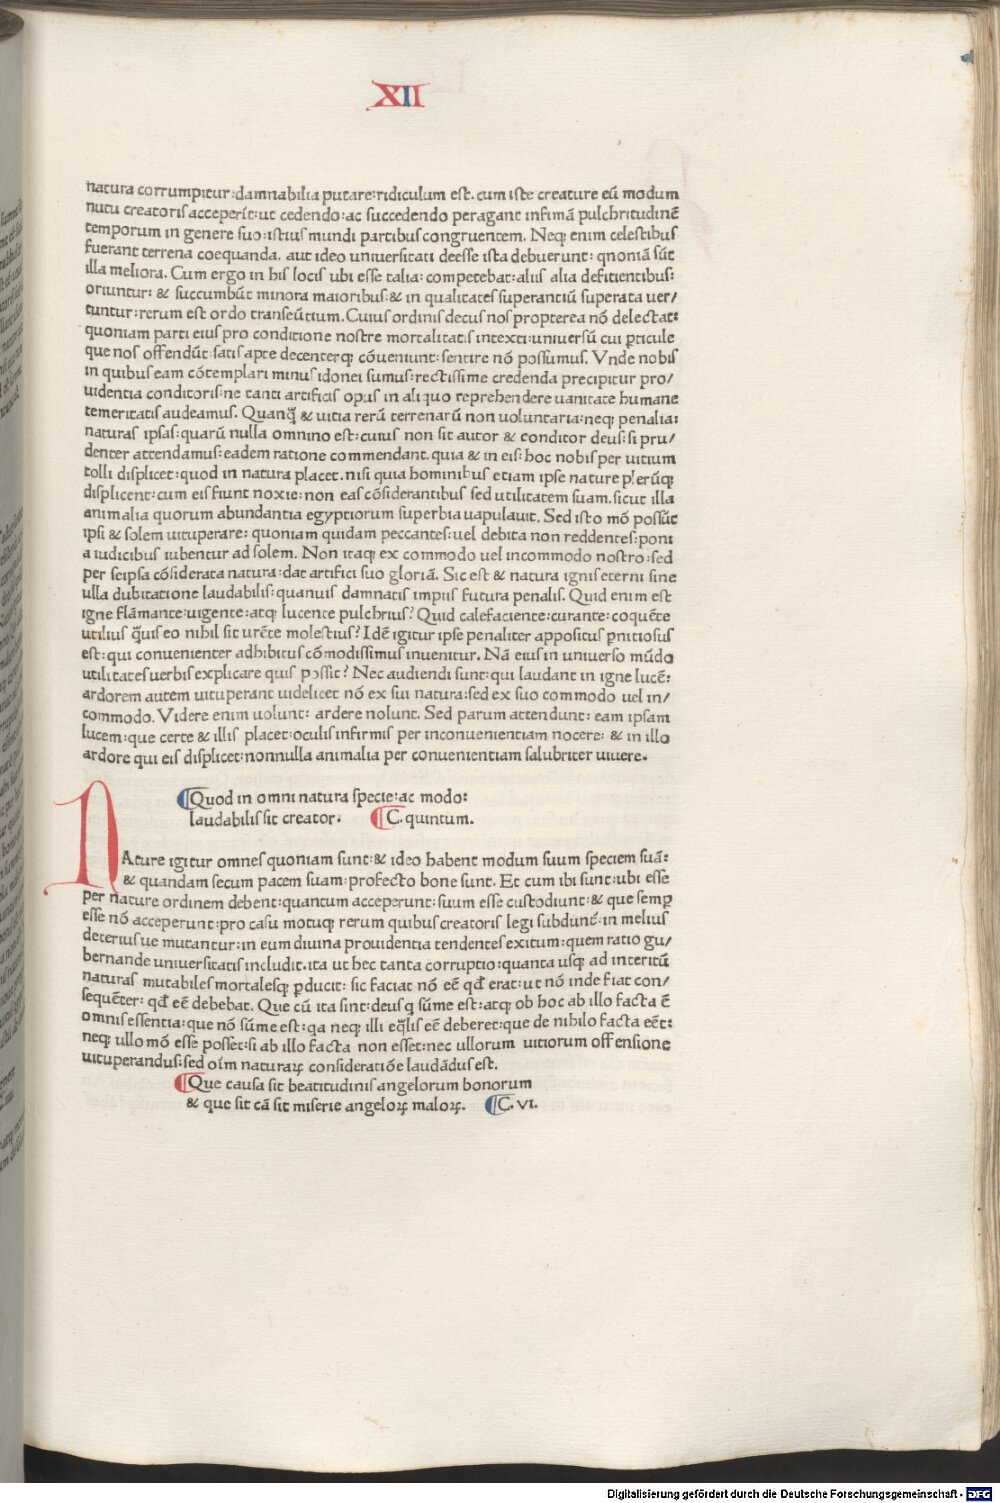 XII
natura corrumpitur:damnabilia putare:ridiculum est. cum iste creature eū modum
nutu creatoris acceperīt:ut cedendo:ac succedendo peragant infimā pulchritudinē
temporum in genere suo:istius mundi partibus congruentem. Neq; enim celestibus
fuerant terrena coequanda. aut ideo uniuersitati deesse ista debuerunt: qnoniā sūt
illa meliora. Cum ergo in his locis ubi esse talia: competebat:aliis alia deficientibus:
oriuntur: & succumbūt minora maioribus:& in qualitates superantiū superata uer/
tuntur:rerum est ordo transeūtium. Cuius ordinis decus nos propterea nō delectat:
quoniam parti eius pro conditione nostre mortalitatis intexti:uniuersū cui pticule
que nos offendūt:satis apte decenterq; cōueniunt:sentire nō possumus. Vnde nobis
in quibus eam cōtemplari minus idonei sumus:rectissime credenda precipitur pro/
uidentia conditoris:ne tanti artificis opus in aliquo reprehendere uanitate humane
temeritatis audeamus. Quanq̄ & uitia rerū terrenarū non uoluntaria:neq; penalia:
naturas ipsas:quarū nulla omnino est:cuius non sit autor & conditor deus:si pru/
denter attendamus:eadem ratione commendant.quia & in eis:hoc nobis per uitium
tolli displicet:quod in natura placet.nisi quia hominibus etiam ipse nature plerūq;
displicent:cum eis fiunt noxie:non eas cōsiderantibus sed utilitatem suam.sicut illa
animalia quorum abundantia egyptiorum superbia uapulauit. Sed isto mō possūt
ipsi & solem uituperare: quoniam quidam peccantes:uel debita non reddentes:poni
a iudicibus iubentur ad solem. Non itaq; ex commodo uel incommodo nostro:sed
per seipsa cōsiderata natura:dat artifici suo gloriā. Sic est & natura ignis eterni sine
ulla dubitatione laudabilis:quanuis damnatis impiis futura penalis. Quid enim est
igne flāmante:uigente:atq; lucente pulchrius? Quid calefaciente:curante:coquēte
utilius q̄uis eo nihil sit urēte molestius? Idē igitur ipse penaliter appositus pnitiosus
est:qui conuenienter adhibitus cōmodissimus inuenitur. Nā eius in uniuerso mūdo
utilitates uerbis explicare quis possit? Nec audiendi sunt:qui laudant in igne lucē:
ardorem autem uituperant uidelicet nō ex sui natura:sed ex suo commodo uel in/
commodo. Videre enim uolunt: ardere nolunt. Sed parum attendunt: eam ipsam
lucem:que certe & illis placet:oculis infirmis per inconuenientiam nocere: & in illo
ardore qui eis displicet:nonnulla animalia per conuenientiam salubriter uiuere.
¶Quod in omni natura specie:ac modo:
laudabilis sit creator. ¶C. quintum.
NAture igitur omnes quoniam sunt:& ideo habent modum suum speciem suā:
& quandam secum pacem suam:profecto bone sunt. Et cum ibi sunt:ubi esse
per nature ordinem debent:quantum acceperunt:suum esse custodiunt:& que semp
esse nō acceperunt:pro casu motuq; rerum quibus creatoris legi subdunt̄:in melius
deterius ue mutantur:in eum diuina prouidentia tendentes exitum:quem ratio gu/
bernande uniuersitatis includit.ita ut hec tanta corruptio:quanta usq; ad interitū
naturas mutabiles mortalesq; pducit: sic faciat nō eē qd erat:ut nō inde fiat con/
sequēter: qd eē debebat. Que cū ita sint:deusq̄ sūme est:atq; ob hoc ab illo facta ē
omnis essentia:que nō sūme est:qa neq; illi eq̄lis eē deberet:que de nihilo facta eēt:
neq; ullo mō esse posset:si ab illo facta non esset:nec ullorum uitiorum offensione
uituperandus:sed oīm naturaꝝ consideratiōe laudādus est.
¶Que causa sit beatitudinis angelorum bonorum
& que sit cā sit miserie angeloꝝ maloꝝ. ¶C. VI.
Digitalisierung gefördert durch die Deutsche Forschungsgemeinschaft - DFG